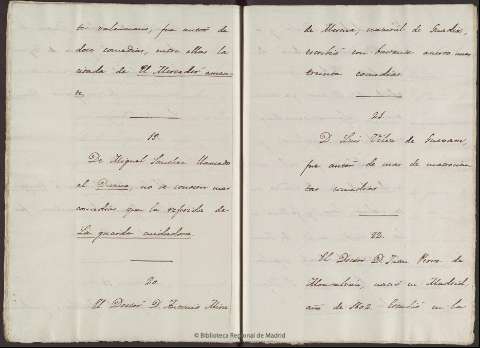 to valenciano, fue autor de
doce comedias, entre ellas la
citada de El Mercader aman-
te.
19.
De Miguel Sanchez llamado
el Divino, no se conocen mas
comedias que la referida de
La guarda cuidadosa.
20.
El Doctor D. Antonio Mira
de Mescua, natural de Guadix,
escribió con bastante acierto mas
treinta comedias.
21.
D. Luis Velez de Guevara,
fue autor de mas de
tas comedias.
22.
El Doctor D. Juan Perez de
Montalván, nació en Madrid,
año de 1602. Estudió en la
© Biblioteca Regional de Madrid